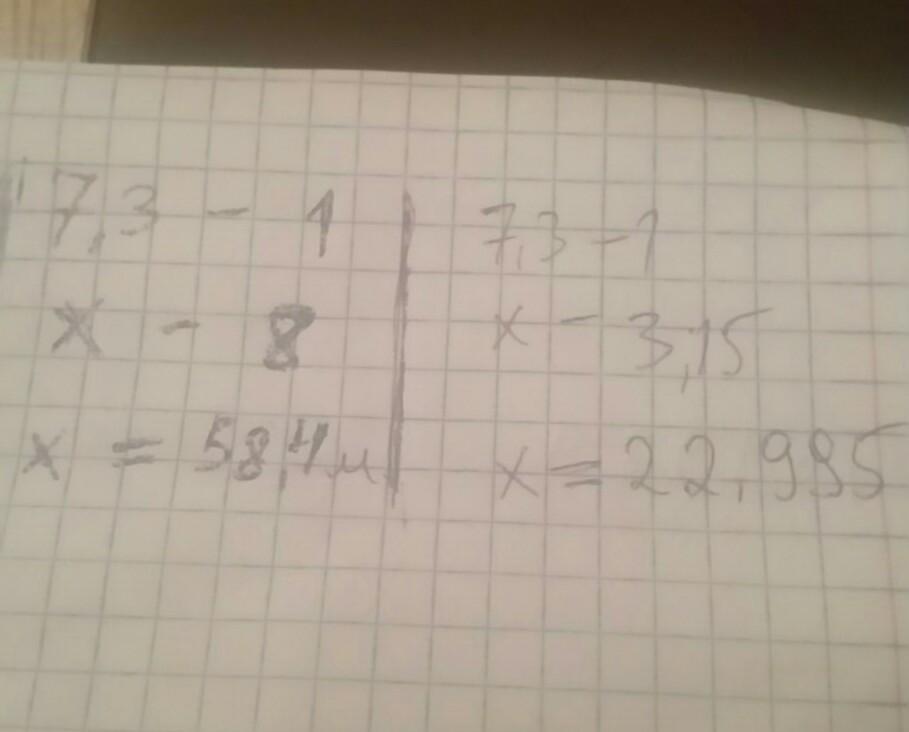 7,3 - 1
x - 8
x = 58,4 м
7,3 - 1
x - 3,15
x = 22,995